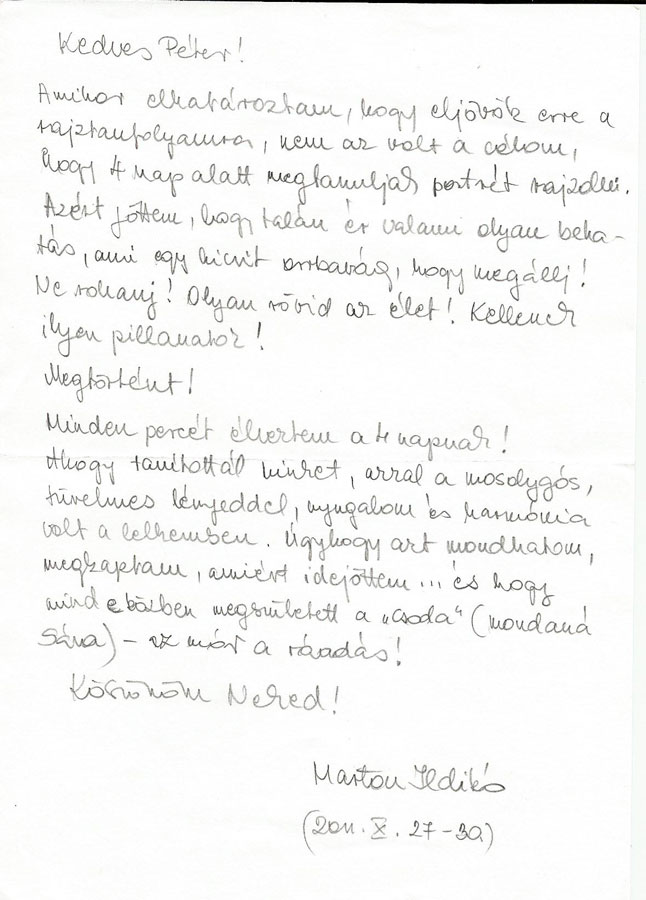 Kedves Péter!
Amikor elhatároztam, hogy eljövök erre a
rajztanfolyamra, nem az volt a célom,
hogy 4 nap alatt megtanuljak portrét rajzolni.
Azért jöttem, hogy talán ér valami olyan beha-
tás, ami egy kicsit arrbavág, hogy megállj!
Ne rohanj! Olyan rövid az élet! Kellenek
ilyen pillanatok!
Megtörtént!
Minden percét élveztem a 4 napnak!
Ahogy tanítottál minket, azzal a mosolygós,
türelmes lényeddel, nyugalom és harmónia
volt a lelkemben. Úgyhogy azt mondhatom,
megkaptam, amiért idejöttem... és hogy
mind e közben megszületett a „csoda" (mondaná
Sára) – ez már a ráadás!
Köszönöm Neked!
Marton Ildikó
(2011. X. 27-30.)